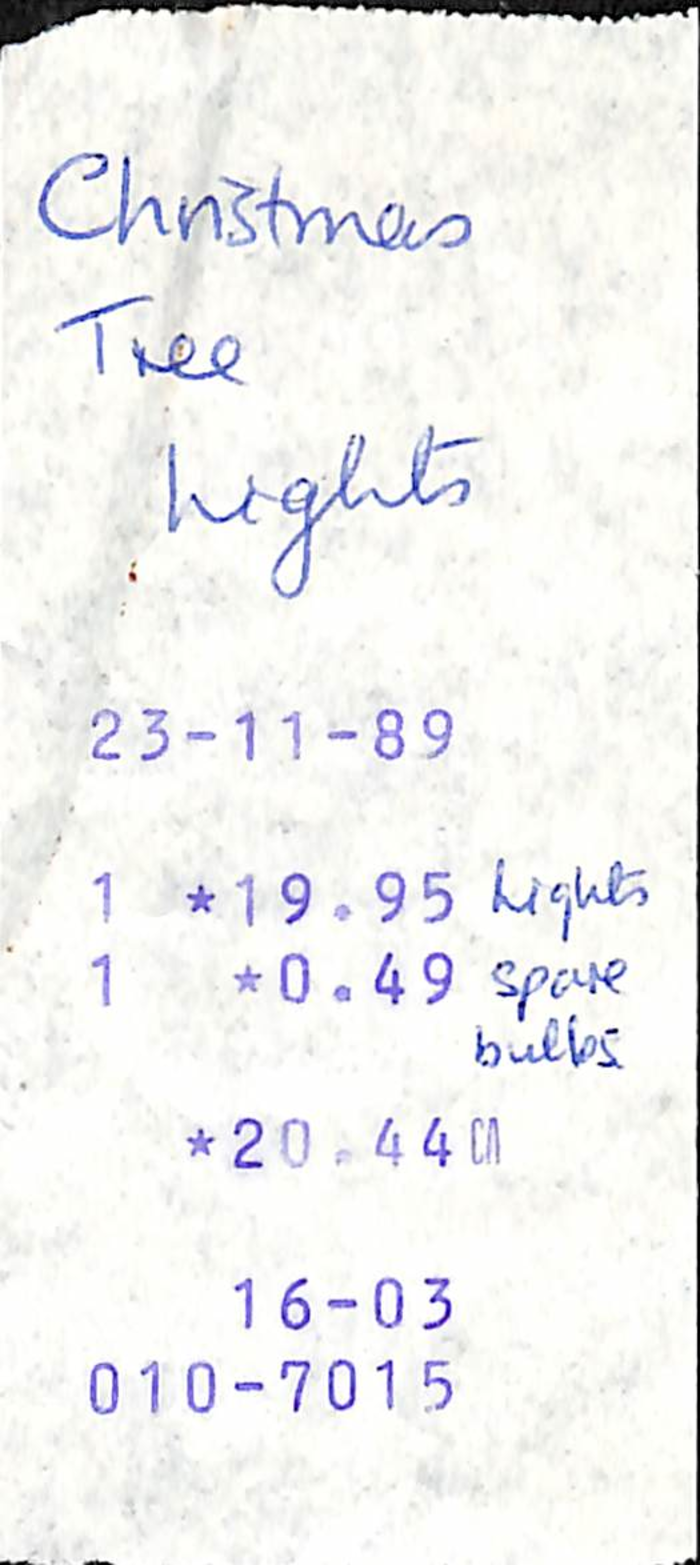 Christmas
Tree
Lights
23-11-89
1 *19.95 Lights
1 *0.49 spare
bulbs
*20.44
16-03
010-7015